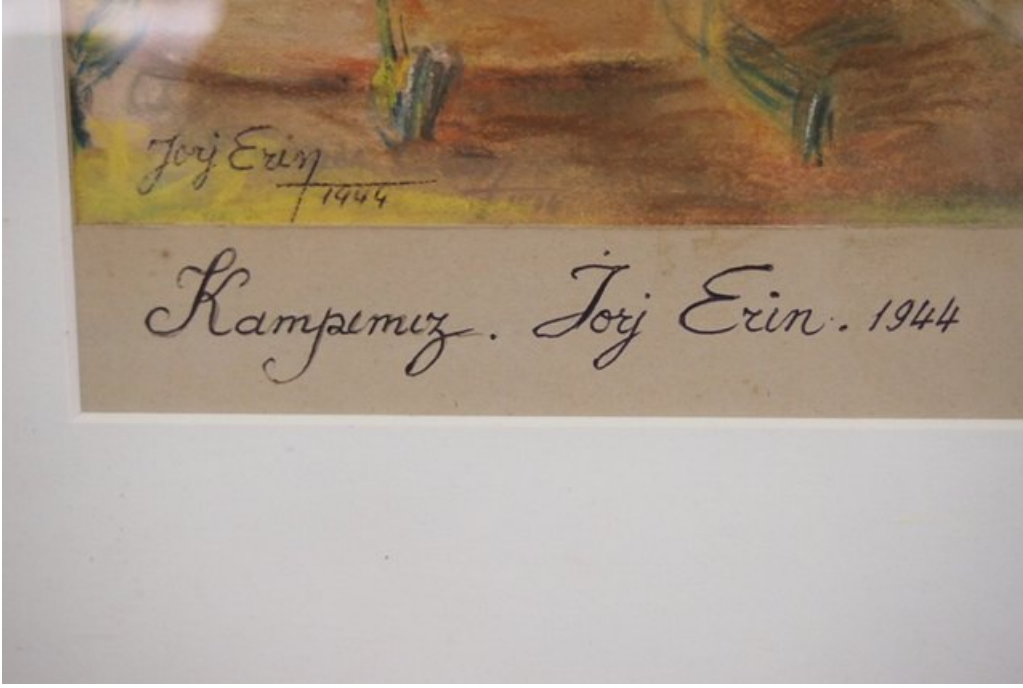 Jorj Erin
1944
Kampımız. Jorj Erin. 1944